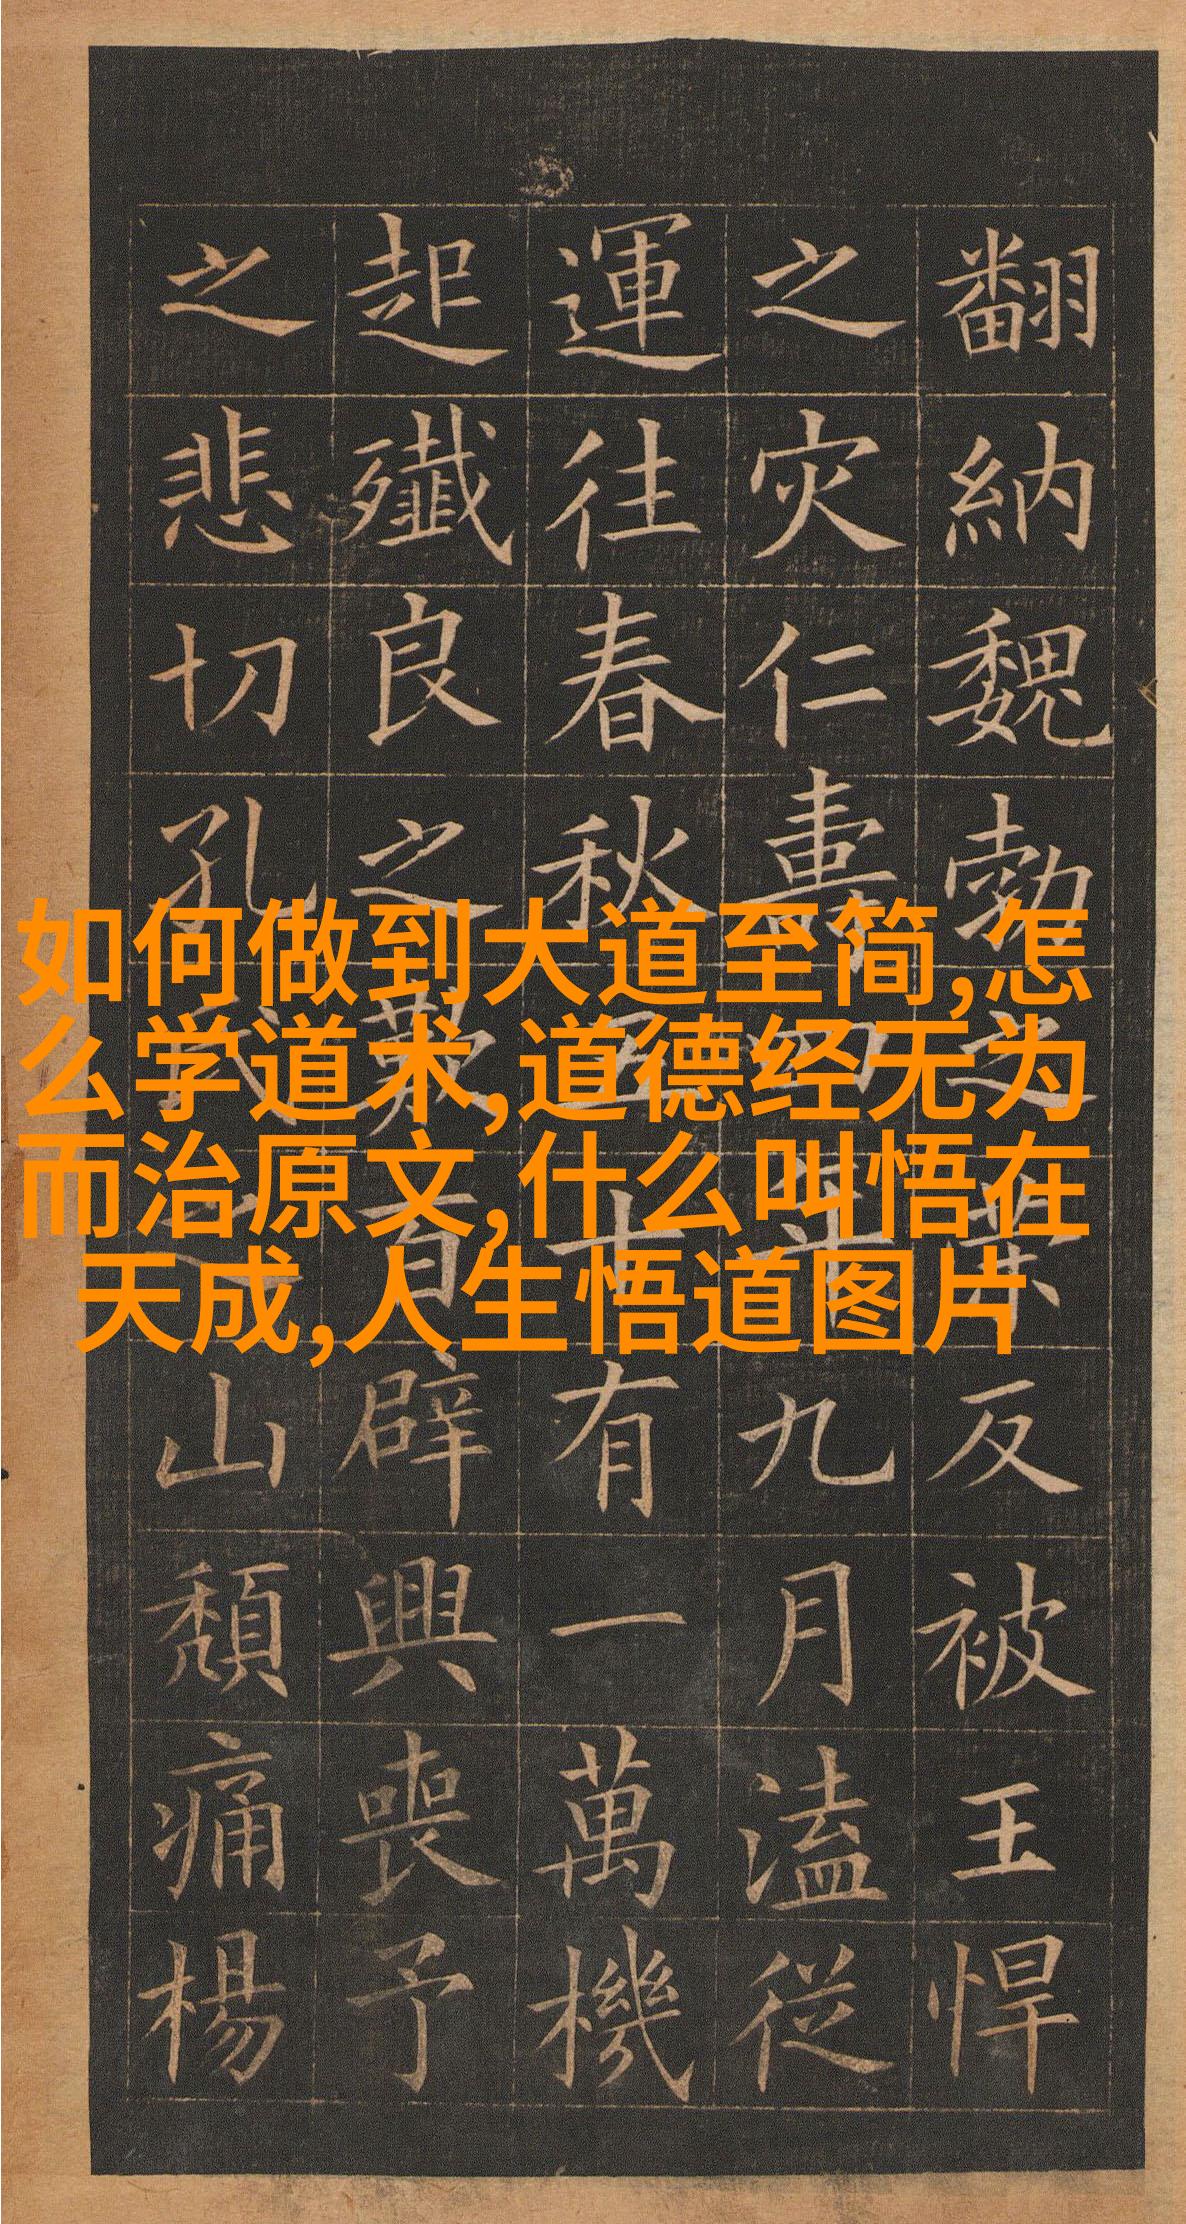 翻納魏勃之反被王悍
之灾仁壽四年九月溘從
運往春秋五十有一萬機
起殲良之歎百辟興喪予
之悲切孔山頽痛楊
如何做到大道至简,怎
么学道术,道德经无为
而治原文,什么叫悟在
天成,人生悟道图片